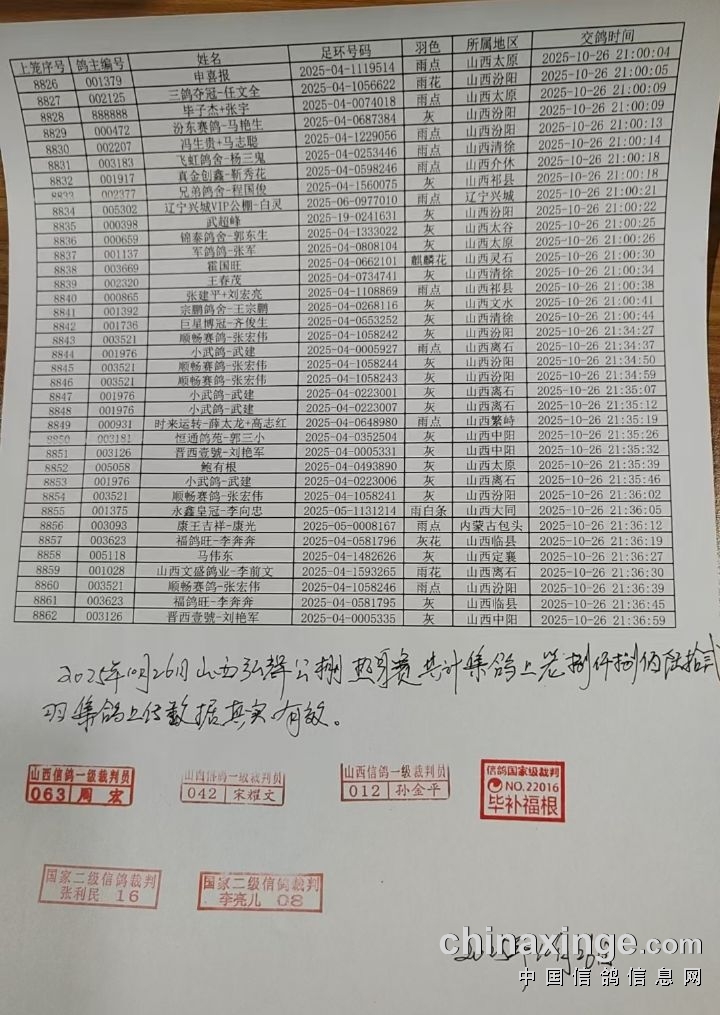 上笼序号 鸽主编号 姓名 足环号码 羽色 所属地区 交鸽时间
8826 001379 申喜报 2025-04-1119514 雨点 山西太原 2025-10-26 21:00:04
8827 002125 三鸽夺冠-任文全 2025-04-1056622 雨花 山西汾阳 2025-10-26 21:00:05
8828 888888 毕子杰+张宇 2025-04-0074018 雨点 山西太原 2025-10-26 21:00:09
8829 000472 汾东赛鸽-马艳生 2025-04-0687384 灰 山西汾阳 2025-10-26 21:00:09
8830 002207 冯生贵+马志聪 2025-04-1229056 雨点 山西汾阳 2025-10-26 21:00:13
8831 003183 飞虹鸽舍-杨三鬼 2025-04-0253446 雨点 山西清徐 2025-10-26 21:00:14
8832 001917 真金创鑫-靳秀花 2025-04-0598246 雨点 山西介休 2025-10-26 21:00:18
8833 002377 兄弟鸽舍-程国俊 2025-04-1560075 灰 山西祁县 2025-10-26 21:00:18
8834 005302 辽宁兴城VIP公棚-白灵 2025-06-0977010 雨点 辽宁兴城 2025-10-26 21:00:21
8835 000398 武超峰 2025-19-0241631 灰 山西汾阳 2025-10-26 21:00:22
8836 000659 锦泰鸽舍-郭东生 2025-04-1333022 灰 山西太谷 2025-10-26 21:00:25
8837 001137 军鸽鸽-张军 2025-04-0808104 灰 山西太原 2025-10-26 21:00:26
8838 003669 霍国旺 2025-04-0662101 麒麟花 山西灵石 2025-10-26 21:00:30
8839 002320 王春茂 2025-04-0734741 灰 山西清徐 2025-10-26 21:00:34
8840 000865 张建平+刘宏亮 2025-04-1108869 雨点 山西祁县 2025-10-26 21:00:38
8841 001392 宗鹏鸽舍-王宗鹏 2025-04-0268116 灰 山西文水 2025-10-26 21:00:41
8842 001736 巨星博冠-齐俊生 2025-04-0553252 灰 山西清徐 2025-10-26 21:00:44
8843 003521 顺畅赛鸽-张宏伟 2025-04-1058242 灰 山西汾阳 2025-10-26 21:34:27
8844 001976 小武鸽-武建 2025-04-0005927 雨点 山西离石 2025-10-26 21:34:37
8845 003521 顺畅赛鸽-张宏伟 2025-04-1058244 灰 山西汾阳 2025-10-26 21:34:50
8846 003521 顺畅赛鸽-张宏伟 2025-04-1058243 灰 山西汾阳 2025-10-26 21:34:59
8847 001976 小武鸽-武建 2025-04-0223001 灰 山西离石 2025-10-26 21:35:07
8848 001976 小武鸽-武建 2025-04-0223007 灰 山西离石 2025-10-26 21:35:12
8849 000931 时来运转-薛太龙+高志红 2025-04-0648980 雨点 山西繁峙 2025-10-26 21:35:19
8850 003181 恒通鸽苑-郭三小 2025-04-0352504 灰 山西中阳 2025-10-26 21:35:26
8851 003126 晋西壹號-刘艳军 2025-04-0005331 灰 山西中阳 2025-10-26 21:35:32
8852 005058 鲍有根 2025-04-0493890 灰 山西太原 2025-10-26 21:35:39
8853 001976 小武鸽-武建 2025-04-0223006 灰 山西离石 2025-10-26 21:35:46
8854 003521 顺畅赛鸽-张宏伟 2025-04-1058241 灰 山西汾阳 2025-10-26 21:36:02
8855 001375 永鑫皇冠-李向忠 2025-05-1131214 雨白条 山西大同 2025-10-26 21:36:05
8856 003093 康王吉祥-康光 2025-05-0008167 雨点 内蒙古包头 2025-10-26 21:36:12
8857 003623 福鸽旺-李奔奔 2025-04-0581796 灰花 山西临县 2025-10-26 21:36:19
8858 005118 马伟东 2025-04-1482626 灰 山西定襄 2025-10-26 21:36:27
8859 001028 山西文盛鸽业-李前文 2025-04-1593265 雨花 山西离石 2025-10-26 21:36:30
8860 003521 顺畅赛鸽-张宏伟 2025-04-1058246 雨点 山西汾阳 2025-10-26 21:36:39
8861 003623 福鸽旺-李奔奔 2025-04-0581795 灰 山西临县 2025-10-26 21:36:45
8862 003126 晋西壹號-刘艳军 2025-04-0005335 灰 山西中阳 2025-10-26 21:36:59
2025年10月26日山西弘馨公棚热身赛共计集鸽上笼捌仟捌佰陆拾贰
羽集鸽上传数据真实有效。
山西信鸽一级裁判员 山西信鸽一级裁判员 山西信鸽一级裁判员 信鸽国家级裁判
063 周宏 042 宋耀文 012 孙金平 NO.22016
毕补福根
国家二级信鸽裁判 国家二级信鸽裁判
张利民 16 李亮儿 08
2025年10月26日
chinaxinge.com
中国信鸽信息网